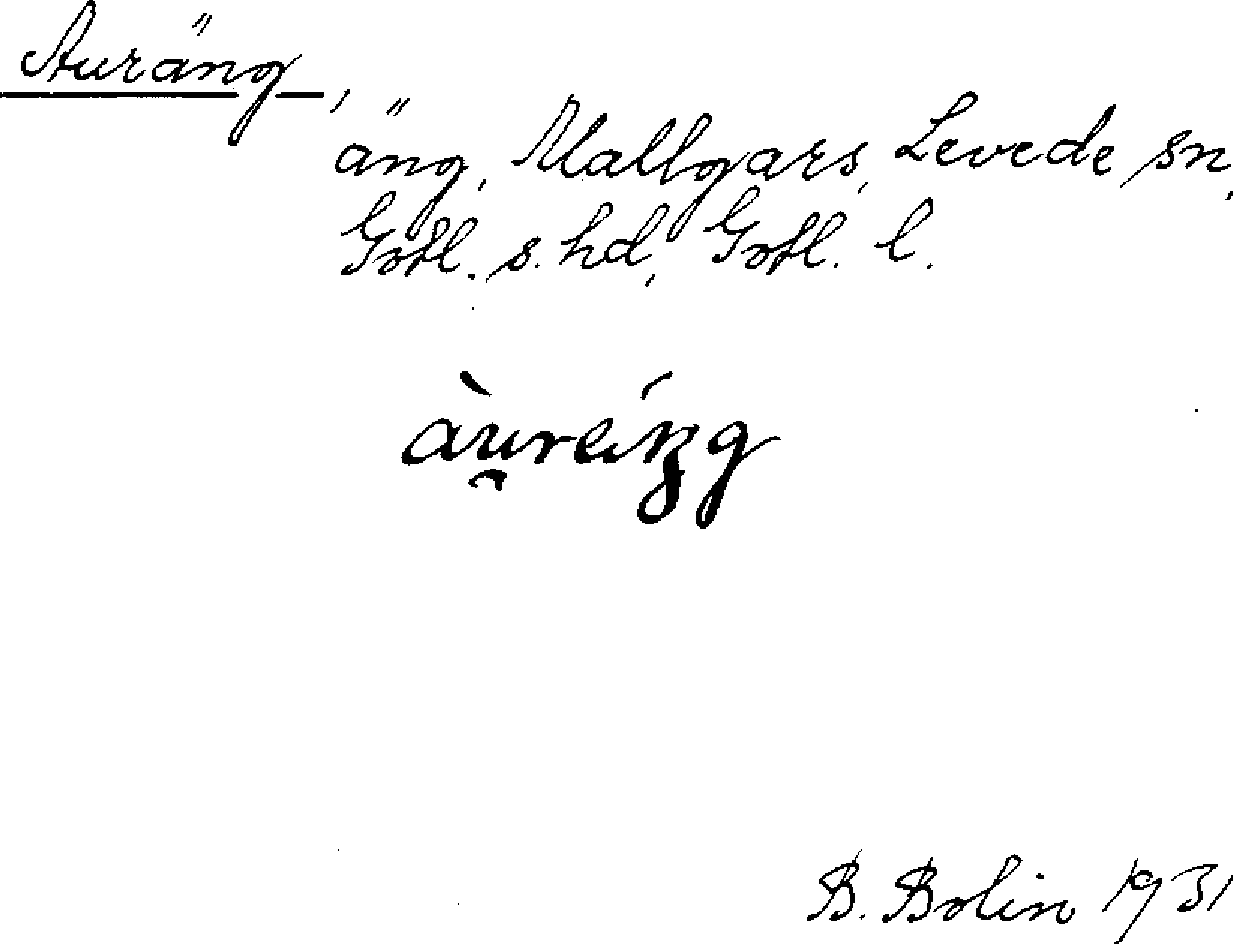 Auräng,
äng, Mallgars, Levede sn,
Gotl. s. hd, Gotl. l.
àu̯reíŋg
B. Bolin 1931